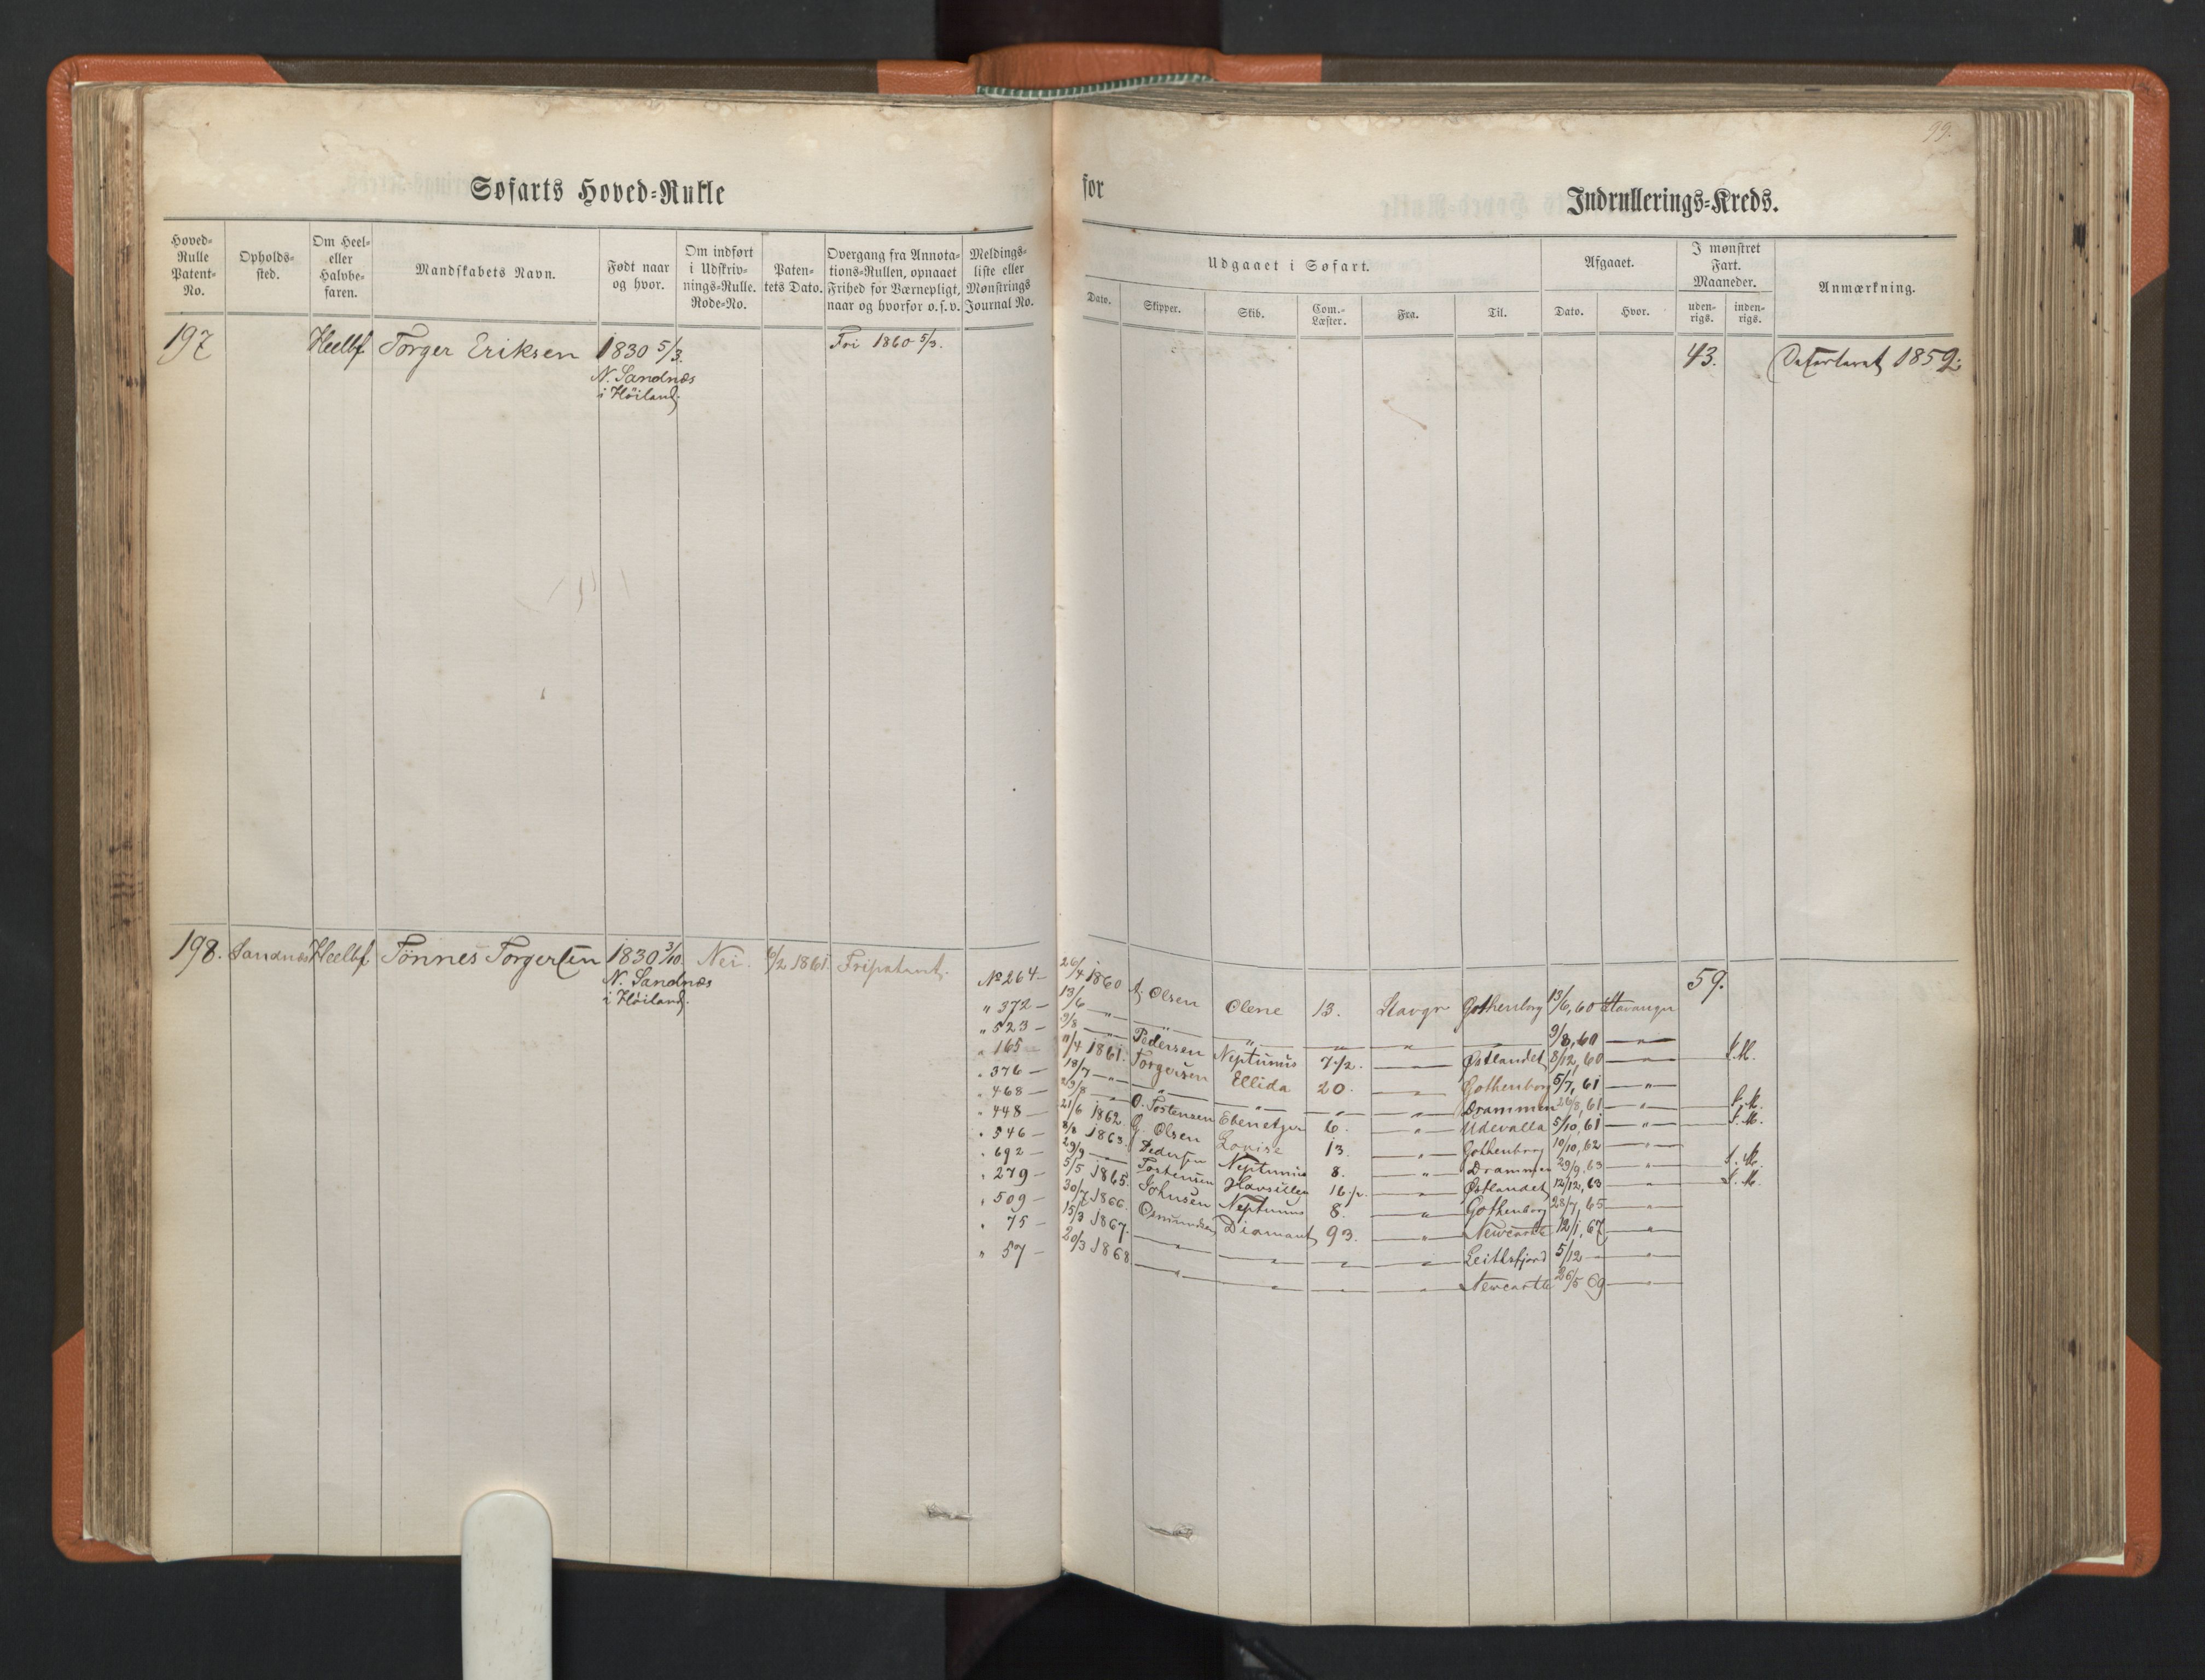 99.
Søfarts Hoved-Rulle
for
Indrullerings-Kreds.
Hoved-Rulle Patent-No.
Opholds-sted.
Om Heel- eller Halvbe-faren.
Mandskabets Navn.
Født naar og hvor.
Om indført i Udskriv-nings-Rulle. Rode-No.
Paten-tets Dato.
Overgang fra Annota-tions-Rullen, opnaaet Frihed for Værnepligt, naar og hvorfor o.s.v.
Meldings-liste eller Mønstrings Journal No.
Udgaaet i Søfart.
Dato.
Skipper.
Skib.
Com.-Læster.
Fra.
Til.
Afgaaet.
Dato.
Hvor.
I mønstret Fart. Maaneder.
uden-rigs.
inden-rigs.
Anmærkning.
197 Heelbf Torger Eriksen 1830 5/3. Fri 1860 5/3. 43. Deserteret 1859.
N. Sandnæs
i Höiland.
198. Sandnæs Heelbf Tönnes Torgersen 1830 3/10. Nei. 6/2 1861. Fripatent. 59.
N. Sandnæs
i Höiland.
No 264 — 26/4 1860 Olsen Olene 13. Stavgr Gothenborg 13/6, 60 Stavanger
" 372 — 13/6 — " — " — " — " — " — 9/8, 60 — " —
" 523 — 9/8 — " — Pedersen Neptunus 7 1/2. — " — Østlandet 8/12, 60 — " — S.M.
" 165 — 11/4 1861. Torgersen Ellida 20. — " — Gothenborg 5/7, 61 — " —
" 376 — 18/7 — " — " — " — " — " — Drammen 26/8, 61 — " — S.M.
" 468 — 29/8 — " — O. Tostensen Ebenetzer 6. — " — Udevalla 5/10, 61 — " — S.M.
" 448 — 21/6 1862. G. Olsen Lovise 13. — " — Gothenborg 10/10, 62 — " —
" 546 — 8/8 1863. Pedersen Neptunus 8. — " — Drammen 29/9, 63 — " — S.M.
" 692 — 29/9 — Tostensen Havsillen 16 1/2. — " — Østlandet 12/12, 63 — " — S.M.
" 279 — 5/5 1865. Johnsen Neptunus 8. — " — Gothenborg 28/7, 65 — " —
" 509 — 30/7 1866. Osmundsen Diamant 93. — " — Newcastle 12/1, 67 — " —
" 75 — 15/3 1867. — " — " — " — " — Leithsfjord 5/12 — " —
" 57 — 20/3 1868 — " — " — " — " — Newcastle 26/5 69 — " —